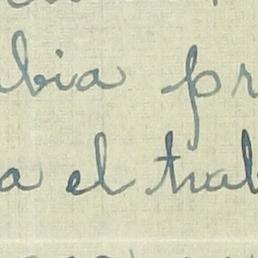 bia pr
a el trab